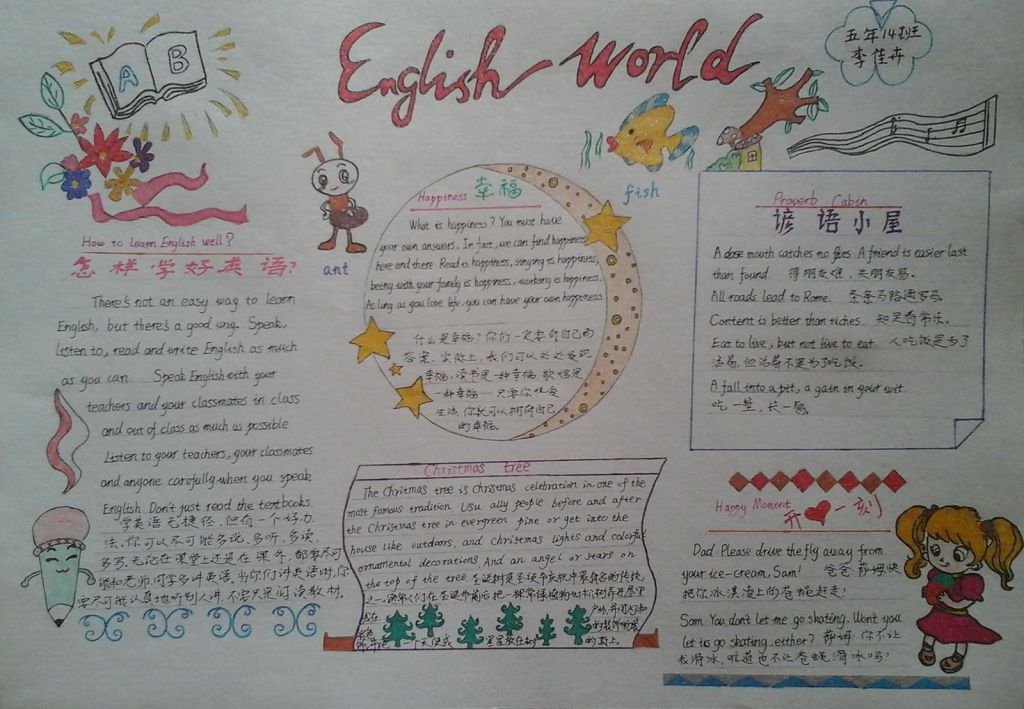 English World
五年14班
李佳卉
A B
How to learn English well?
怎样学好英语?
There's not an easy way to learn
English, but there's a good wng. Speak,
listen to, read and write English as much
as you can. Speak English with your
teachers and your classmates in class
and out of class as much as possible
Listen to your teachers, your classmates
and anyone carefully when you speak
English. Don't just read the textbooks.
学英语无捷径,但有一个好办
法,你可以尽可能多说,多听,多读,
多写,无论在课堂上还是在课外,都要尽可
能和老师,同学多讲英语,当你们讲英语时,你
要尽可能认真地听别人讲,不要只是阅读教材.
ant
Happiness 幸福
What is happiness? You must have
your own answers. In fact, we can find happiness
here and there. Read is happiness, singing is happiness,
being with your family is happiness, working is happiness.
As long as you love life, you can have your own happiness
什么是幸福?你们一定要有自己的
答案,实际上,我们可以处处发现
幸福,读书是一种幸福,歌唱是
一种幸福——只要你热爱
生活,你就可以拥有自己
的幸福.
fish
Proverb Cabin
谚语小屋
A close mouth catches no flies. A friend is easier last
than found 得朋友难,失朋友易.
All roads lead to Rome. 条条马路通罗马.
Content is better than riches. 知足者常乐.
Eat to live, but not live to eat. 人吃饭是为了
活着,但活着不是为了吃饭.
A fall into a pit, a gain in your wit.
吃一堑,长一智.
Christmas tree
The Chritmas tree is Christmas celebration in one of the
most famous tradition. Usu ally people before and after
the Christmas tree in evergreen pine or get into the
house like outdoors, and christmas lights and colorful
ornamental decorations And an angel or stars on
the top of the tree. 圣诞树是圣诞节庆祝中最有名的传统
之一.
一个天使或 星星放在树 的顶上.
Happy Moment 开心一刻
Dad: Please drive the fly away from
your ice-cream, Sam! 爸爸:萨姆,快
把你冰淇凌上的苍蝇赶走!
Sam: You don't let me go skating. Won't you
let is go skating, either? 萨姆:你不让
我滑冰,难道也不让苍蝇滑冰吗?